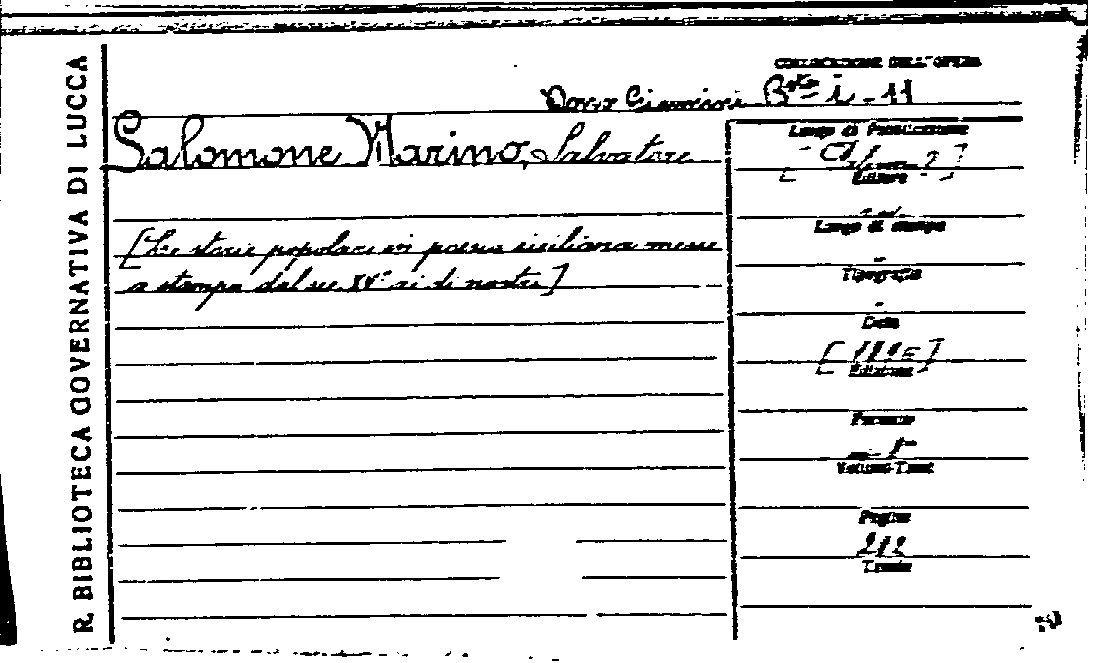 R. BIBLIOTECA GOVERNATIVA DI LUCCA
COLLOCAZIONE DELL'OPERA
Dono Giannini B i - 11
Salomone Marino, Salvatore
[Le storie popolari in poesia siciliana messe
a stampa dal sec XV° ai dì nostri]
Luogo di Pubblicazione
Editore
Luogo di stampa
Tipografia
Data
Edizione
Formato
Volumi-Tomi
Pagine
212
Tavole